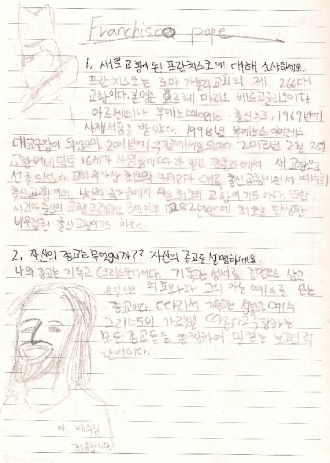 Franchisco pope
1. 새로 교황이 된 프란치스코에 대해 조사하세요.
프란치스코는 로마 가톨릭교회의 제 266대
교황이다. 본명은 호르헤 마리오 베르고글리오이다
아르헨티나 부에노스아이레스 출신으로, 1969년에
사제서품을 받았다. 1998년 부에노스 아이레스
대교구장이 되었고 2001년에 추기경에 서임되었다. 2013년 2월 28일
교황 베네딕토 16세가 사임함에 따라 열린 콘클라베에서 새 교황으로
선출되었다.
출신 교황이며,
시리아 출신의 교황 그레고리오 3세 이후 1282년만에 최초로 탄생한
비유럽권 출신 교황이기도 하다.
2. 자신의 종교는 무엇입니까?? 자신의 종교를 설명하세요.
나의 종교는 기독교 (크리스트교)이다. 기독교는 성서를 경전으로 삼고
유일신 여호와와 그의 아들 예수를 믿는
종교이다. 따라서 기독교는 성경과 예수
그리스도의 가르침을
모든 종교들을 총칭하여 일컫는 보편적
단어이다.
아 예수님